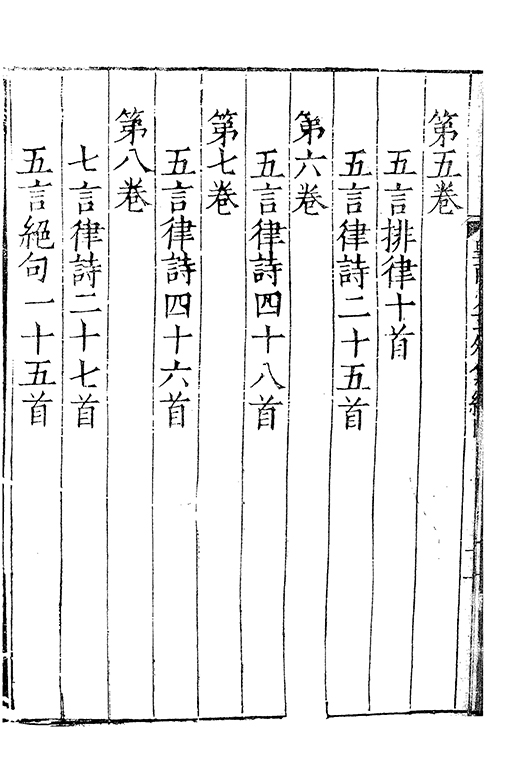 第五卷
五言排律十首
五言律詩二十五首
第六卷
五言律詩四十八首
第七卷
五言律詩四十六首
第八卷
七言律詩二十七首
五言絕句一十五首